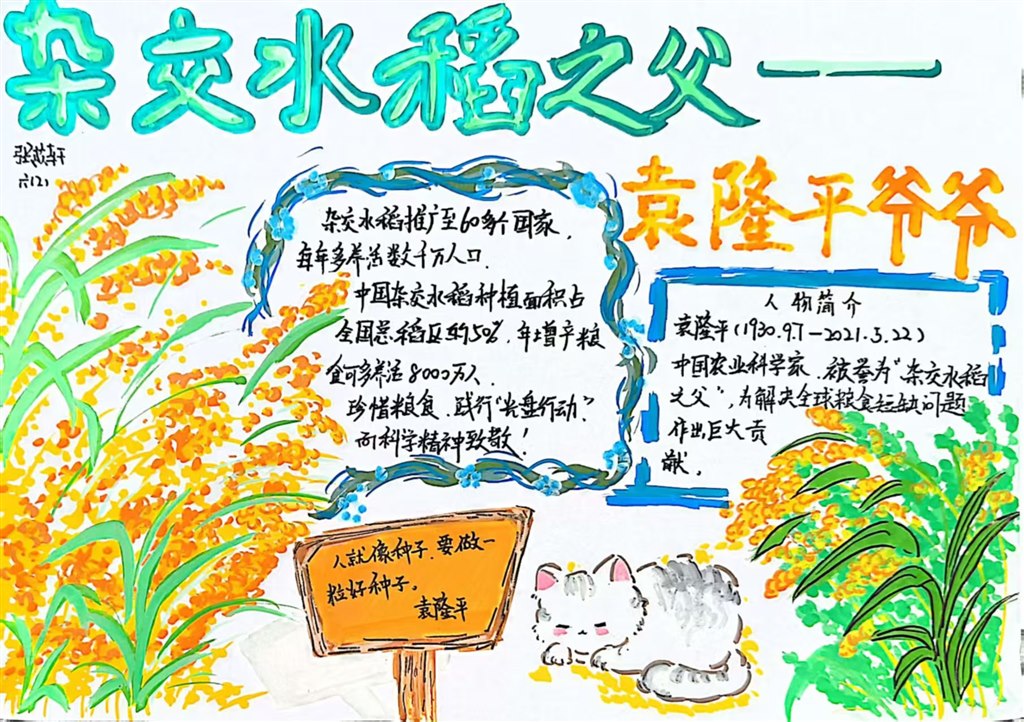 杂交水稻之父——
张苡轩
六(2)
袁隆平爷爷
杂交水稻推广至60多个国家，
每年多养活数千万人口.
中国杂交水稻种植面积占
全国总稻区约50%，年增产粮
食可多养活8000万人.
珍惜粮食、践行“光盘行动”
向科学精神致敬！
人物简介
袁隆平(1930.9.7—2021.5.22)
中国农业科学家、被誉为“杂交水稻
之父”，为解决全球粮食短缺问题
作出巨大贡
献。
人就像种子，要做一
粒好种子。
袁隆平